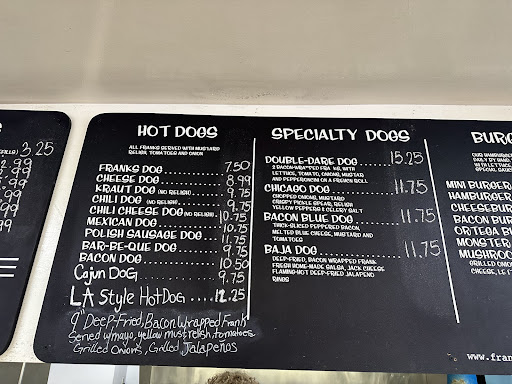 3.25
HOT DOGS
ALL FRANKS SERVED WITH MUSTARD
RELISH, TOMATOES AND ONION
FRANKS DOG 7.50
CHEESE DOG 8.99
KRAUT DOG (NO RELISH) 9.75
CHILI DOG (NO RELISH) 9.75
CHILI CHEESE DOG (NO RELISH) 10.75
MEXICAN DOG 10.75
POLISH SAUSAGE DOG 11.75
BAR-BE-QUE DOG 9.75
BACON DOG 10.50
Cajun DOG 9.75
LA Style HotDog .... 12.25
9" Deep-Fried, Bacon Wrapped Frank
Served w/mayo, yellow must, relish, tomatoes
Grilled Onions, Grilled Jalapeños
SPECIALTY DOGS
DOUBLE-DARE DOG 15.25
2 BACON-WRAPPED FRANKS, WITH
LETTUCE, TOMATO, ONIONS, MUSTARD
AND PEPPERONCINI ON A FRENCH ROLL
CHICAGO DOG 11.75
CHOPPED ONIONS, MUSTARD
CRISPY PICKLE SPEAR, RELISH
YELLOW PEPPERS & CELERY SALT
BACON BLUE DOG 11.75
THICK-SLICED PEPPERED BACON,
MELTED BLUE CHEESE, MUSTARD AND
TOMATOES
BAJA DOG 11.75
DEEP-FRIED, BACON WRAPPED FRANK
FRESH HOME-MADE SALSA, JACK CHEESE
FLAMING-HOT DEEP-FRIED JALAPENO
RINGS
BURG
MINI BURGER
HAMBURGER
CHEESEBURG
BACON BURG
ORTEGA BU
MONSTER
MUSHROO
GRILLED ONIO
CHEESE, LET
www.fran